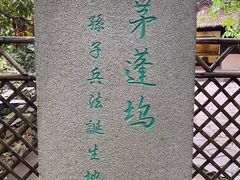 茅蓬坞
孫子兵法誕生地